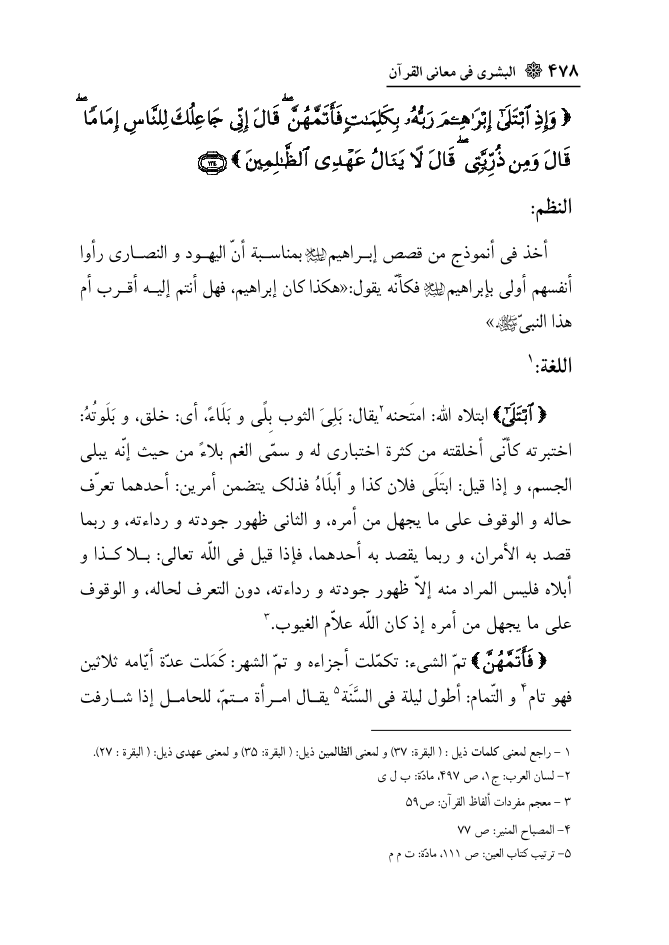 ۴۷۸ ۞ البشری فی معانی القرآن
﴿ وَإِذِ ٱبۡتَلَىٰٓ إِبۡرَٰهِـۧمَ رَبُّهُۥ بِكَلِمَٰتٖ فَأَتَمَّهُنَّۖ قَالَ إِنِّي جَاعِلُكَ لِلنَّاسِ إِمَامٗاۖ
قَالَ وَمِن ذُرِّيَّتِيۖ قَالَ لَا يَنَالُ عَهۡدِي ٱلظَّٰلِمِينَ ﴾ ١٢٤
النظم:
أخذ فی أنموذج من قصص إبراهیم﵇ بمناسبة أنّ الیهود و النصاری رأوا
أنفسهم أولی بإبراهیم﵇ فکأنّه یقول:«هکذا کان إبراهیم، فهل أنتم إلیه أقرب أم
هذا النبیّﷺ.»
اللغة:۱
﴿ ٱبۡتَلَىٰٓ﴾ ابتلاه الله: امتَحنه۲یقال: بَلِیَ الثوب بِلًی و بَلَاءً، أی: خلق، و بَلَوتُهُ:
اختبرته کأنّی أخلقته من کثرة اختباری له و سمّی الغم بلاءً من حیث إنّه یبلی
الجسم، و إذا قیل: ابتَلَی فلان کذا و أَبلَاهُ فذلک یتضمن أمرین: أحدهما تعرّف
حاله و الوقوف علی ما یجهل من أمره، و الثانی ظهور جودته و رداءته، و ربما
قصد به الأمران، و ربما یقصد به أحدهما، فإذا قیل فی اللّه تعالی: بـلا کـذا و
أبلاه فلیس المراد منه إلاّ ظهور جودته و رداءته، دون التعرف لحاله، و الوقوف
علی ما یجهل من أمره إذ کان اللّه علاّم الغیوب.۳
﴿ فَأَتَمَّهُنَّ﴾ تمّ الشیء: تکمّلت أجزاءه و تمّ الشهر: کَمَلت عدّة أیّامه ثلاثین
فهو تام۴ و التّمام: أطول لیلة فی السَّنَة۵ یقـال امـرأة مـتمّ، للحامـل إذا شـارفت
۱ – راجع لمعنی کلمات ذیل : ( البقرة: ۳۷) و لمعنی الظالمین ذیل: ( البقرة: ۳۵) و لمعنی عهدی ذیل: ( البقرة : ۲۷).
۲– لسان العرب: ج۱، ص ۴۹۷، مادّة: ب ل ی
۳ – معجم مفردات ألفاظ القرآن: ص۵۹
۴– المصباح المنیر: ص ۷۷
۵– ترتیب کتاب العین: ص ۱۱۱، مادّة: ت م م